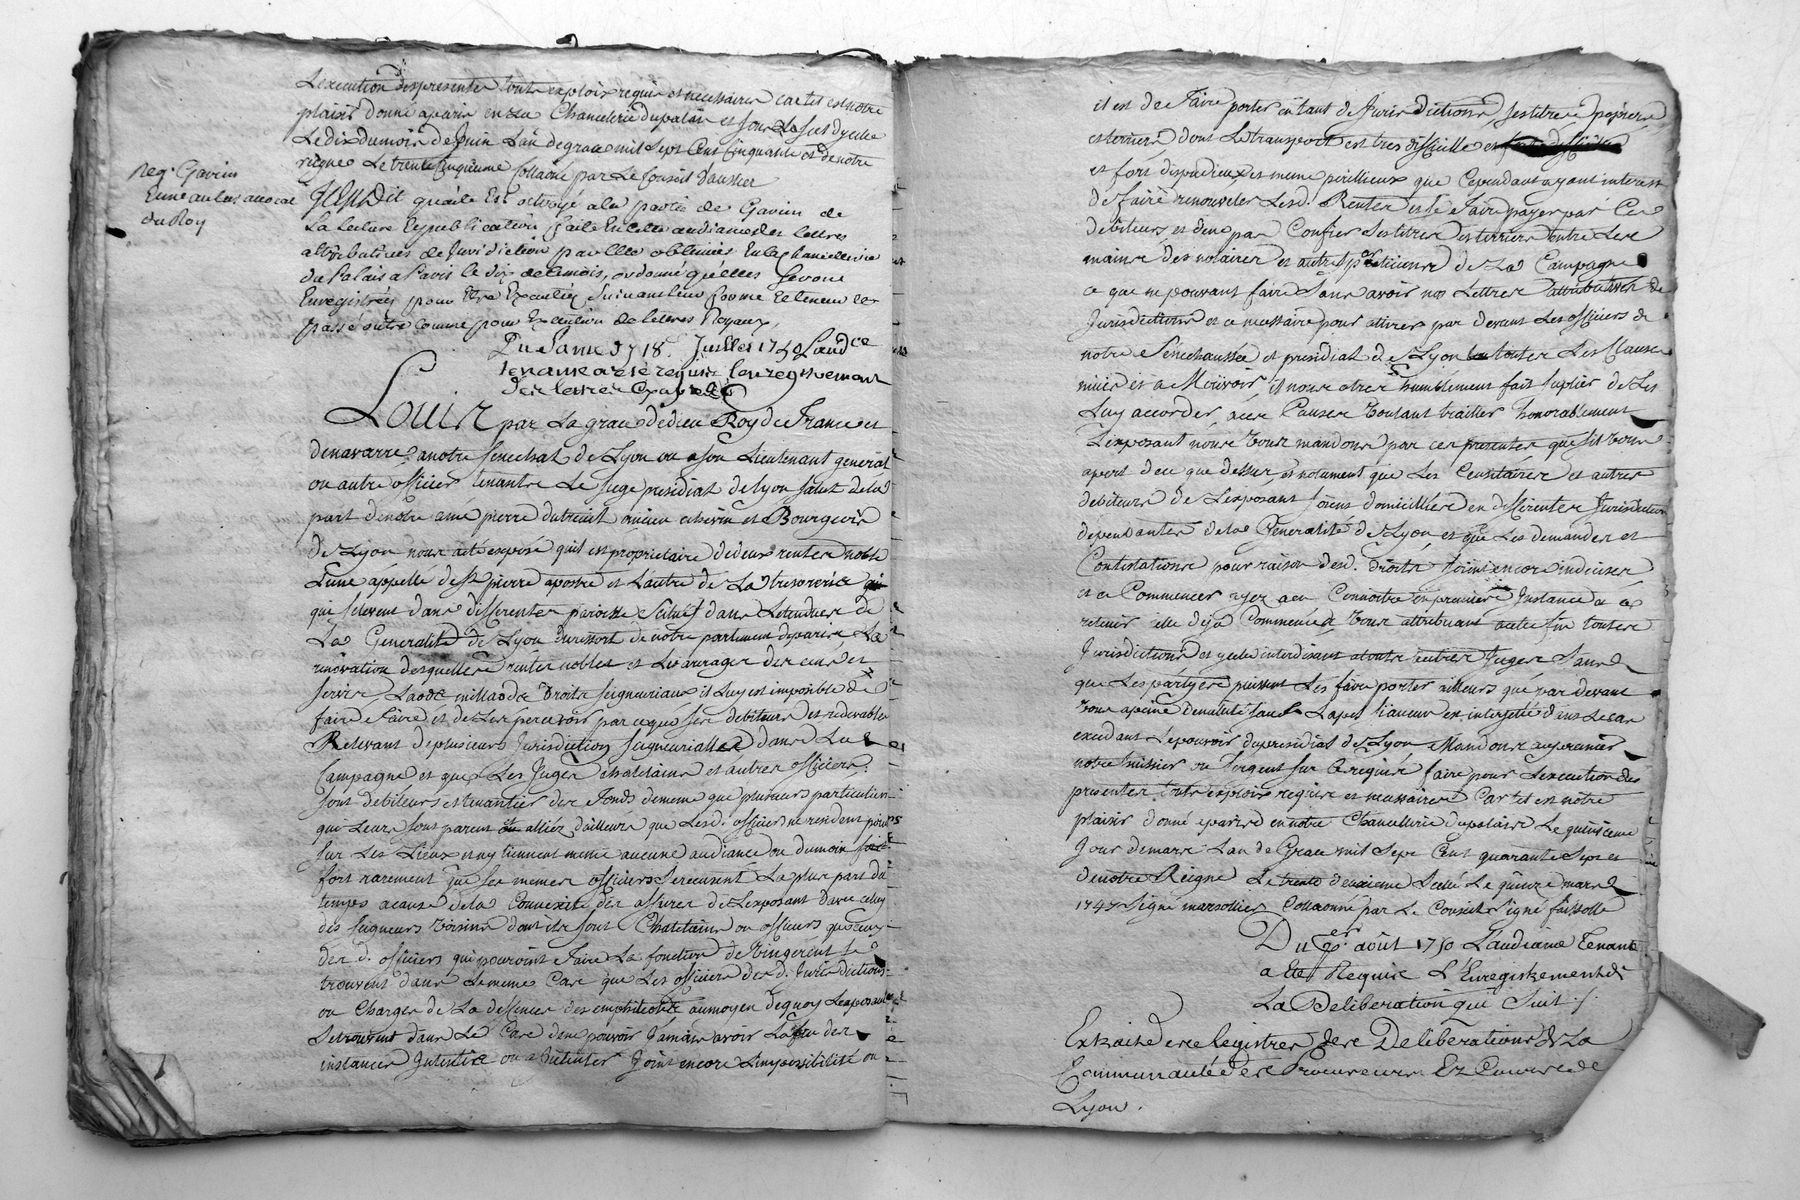 Lexecution despresentes touts exploix requis et necessaires car tel est notre
plaisir donné aparis en La Chancelerie dupalais et sous Le scel dycelle
Le dix dumois de Juin Lan de grace mil sept Cent Cinquante et denotre
regne Le trente Cinquieme Collaoné par Le Conseil
Req. Gavin
avocat
du Roy
Il est dit quacte Est octroyé ala partie de Gavin de
La lecture Et publication faite En cette audiance des lettres
attributives de Juridiction par Elle obtenues En la chancellerie
du Palais a Paris le dix de Juin, ordonné qu'elles Seront
Enregistrées pour Etre Executées Suivant leur forme Et teneur Et
passé outre comme pour Execution de lettres Royaux,
Du Samedy 18 Juillet 1750 Laud.ce
tenante a eté requis lenregistrement
des lettres Cy apres
Louis par La grace dedieu Roy de France et
denavarre anotre senechal de Lyon ou ason Lieutenant general
ou autre officier tenants Le siege presidial de lyon salut dela
part denotre amé pierre dutreuil ancien echevin et Bourgeois
de Lyon nous aeté exposé quil est proprietaire dedeux rentes noble
Lune appellé de St pierre apostre et L'autre de La tresorerie
qui selevent dans differentes paroisse scitués dans Letendue de
La Generalité de Lyon duressort de notre parlement deparis La
renovation desquelles rentes nobles et Les arrerages des cens et
servis Laods millaods droits seigneuriaux il Luy est imposible de
faire faire et deLes percevoir par ceque ses debiteurs et redevables
Relevant deplusieurs Jurisdiction seigneurialles dans La
Campagne et que Les Juges chatelains et autres officiers
sont debiteurs et tenantier des fonds dememe que plusieurs particuliers
qui Leurs sont parent ou alliés, dailleurs que Lesd. officiers ne resident point
sur Les Lieux et ny tiennent meme aucune audiance ou dumoin
fort rarement que ses memes officiers serecusent La plus part du
temps acause dela Connexité des affaires de Lexposant avec celuy
des seigneurs voisins dont ils sont Chatelains ou officiers
des d. officiers qui pouroint faire La fonction de se
trouvent dans Lememe Cas que Les officiers des d. Jurisdictions
ou Charges de La deffences des emphiteotes aumoyen dequoy Lexposant
setrouvent dans Le Cas dene pouvoir Jamais avoir La fin des
instances Intentée ou a Intenter Joint encore Limpossibilité ou
il est de Faire porter en tant de Jurisdictions ses titres papiers
et terriers dont Letransport est tres difficille et
et fort dispendieux et meme perillieux que Cependant ayant interest
de faire renouveler Lesd. Rentes et se faire payer par Ces
debiteurs et dene pas Confier ses titres et terriers entre Les
mains des notaires et autres praticiens de La Campagne
ce que ne pouvant faire sans avoir nos Lettres attributives de
Jurisdictions et ce necessaire pour attirer par devant Les officiers de
notre Senechaussée et presidial de Lyon toutes Les Causes
mües et a Mouvoir il nous atres humblement fait suplier de Les
Luy accorder a ces Causes voulant traitter honorablement
Lexposant nous vous mandons par ces presentes que sil vous
apert dece que dessus, et notament que Les Censitaires et autres
debiteurs de Lexposant soient domicilliés en differentes Jurisdictions
dependantes dela Generalité de Lyon et que Les demandes et
Contestations pour raison desd. droits soient encore indecises
et a Commencer ayez aen Connoitre en premiere Instance
retenir celle deja Commencée vous attribuant acette fin toutes
Jurisdictions et ycelle interdisant atoute autres Juges sans
que Les partyes puissent Les faire porter ailleurs que par devant
vous apeine denulité sauf Lapel sianeur en interjetté dans Le cas
excedant Lepouvoir dupresidial de Lyon Mandons aupremier
notre huissier ou sergent sur ce requis faire pour Lexecution des
presentes touts exploix requis et necessaires Car tel est notre
plaisir donné aparis en notre Chancellerie dupalais Le quinzieme
Jour demars Lan de Grace mil Sept Cent quarante Sept et
denotre Reigne Letrente deuxieme Scellé Le quinze mars
1747 Signé marsollier Collaonné par Le Conseil Signé
Du 1er. août 1750 L'audiance Tenante
a Eté Requis L'Enregistrement de
La Deliberation qui Suit ./.
Extrait des Registres des Deliberations de La
Communauté des Procureurs Ez Cours de
Lyon.